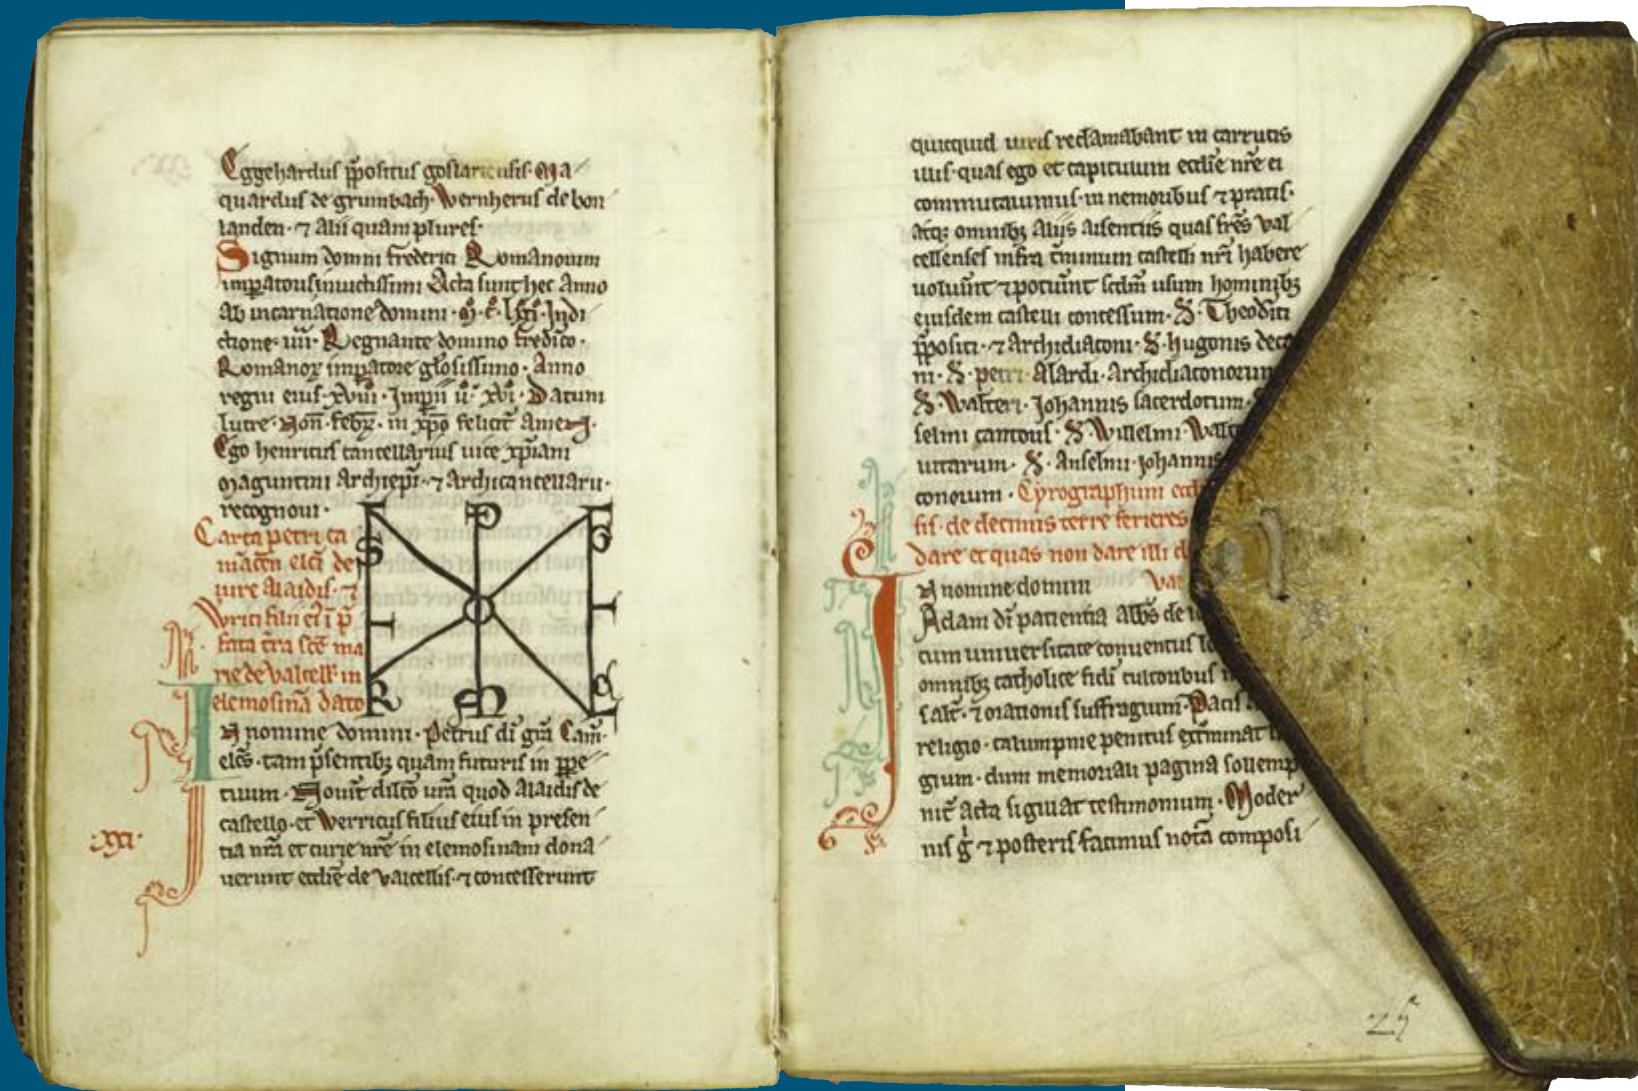 Eggehardus p̄positus goslariensis. Ma
quardus de grumbach. Wernherus de bon
landen. ⁊ Alii quam plures.
Signum domni frederici Romanorum
imꝑatoris inuictissimi Acta sunt hec Anno
Ab incarnatione domini. M. C. lxxi. Indi
ctione. iiii. Regnante domino fredico.
Romanoꝝ imꝑatore gl̄osissimo. Anno
regni eius. xviii. Imꝑii ū. xvi. Datum
lutre. Non̄. febꝝ. in xp̄o felicit̄ Amen.
Ego henricus cancellarius uice xp̄iani
maguntini Archiep̄i. ⁊ Archicancellarii.
recognoui.
Carta petri ca
mācen̄ elc̄i de
iure Alaidis. ⁊
Wirici filii ei᷒ ī p̄
fata t̄ra sc̄e ma
rie de valcell̄ in
elemosinā dato
F P E
S C
I I
R M D
L
In nomine domini. Petrus di̅ gr̄a Cam̄.
elc̄s. tam p̄sentibꝫ quam futuris in ꝑpe
tuum. Nouit̄ dilc̄o ur̄a quod Alaidis de
castello. et Werricus filius eius in presen
tia nr̄a et curie nr̄e in elemosinam dona
uerunt eccl̄ie de valcellis. ⁊ concesserunt
.xxi.
quicquid iuris reclamabant in carrucis
illis. quas ego et capitulum eccl̄ie nr̄e ei
commutauimus. in nemoribus ⁊ pratis.
atqꝫ omnibꝫ Aliis aisentiis quas fr̄es val
cellenses infra t̄minum castelli nr̄i habere
uoluer̄t ⁊ potuer̄t scdm̄ usum hominibꝫ
eiusdem castelli concessum. S. Theodici
p̄positi. ⁊ Archidiaconi. S. hugonis deca
ni. S. petri. Alardi. Archidiaconorum
S. Walteri. Johannis sacerdotum.
selmi cantoris. S. Willelmi. Walt
uitarum. S. Anselmi. Johannis
conorum. Cyrographum eccl
sis. de decimis terre ferieres
dare et quas non dare illi d
In nomine domini val
Adam di̅ patientia abb̄s de
cum uniuersitate conuentus
omnibꝫ catholice fidei cultoribus
salt̄. ⁊ orationis suffragium. Pacis
religio. calumpnie penitus ext̄minat
gium. dum memoriali pagina sollemp
nit̄ acta signat testimonium. Moder
nis g̊ ⁊ posteris facimus notā composi
25